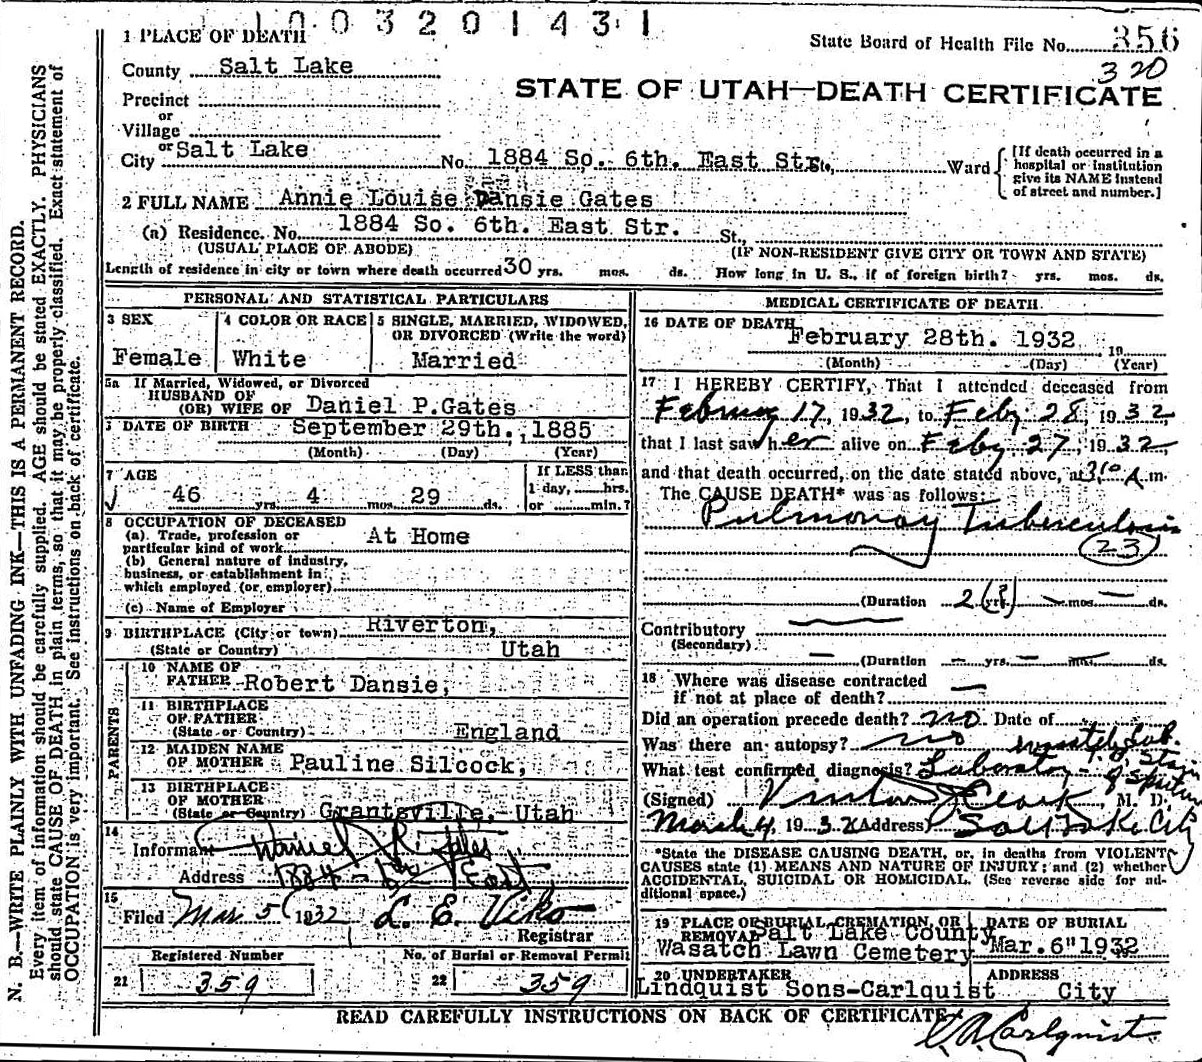 1003201431
1 PLACE OF DEATH
State Board of Health File No. 356
320
County Salt Lake
STATE OF UTAH—DEATH CERTIFICATE
Precinct
or
Village
or
City Salt Lake No. 1884 So. 6th. East Str. St., Ward
[If death occurred in a hospital or institution give its NAME instead of street and number.]
2 FULL NAME Annie Louise Dansie Gates
(a) Residence. No. 1884 So. 6th. East Str. St.,
(USUAL PLACE OF ABODE) (IF NON-RESIDENT GIVE CITY OR TOWN AND STATE)
Length of residence in city or town where death occurred 30 yrs. mos. ds. How long in U. S., if of foreign birth? yrs. mos. ds.
PERSONAL AND STATISTICAL PARTICULARS
3 SEX
Female
4 COLOR OR RACE
White
5 SINGLE, MARRIED, WIDOWED,
OR DIVORCED (Write the word)
Married
5a If Married, Widowed, or Divorced
HUSBAND OF
(OR) WIFE OF Daniel P.Gates
DATE OF BIRTH September 29th. 1885
(Month) (Day) (Year)
7 AGE
46 yrs. 4 mos. 29 ds.
If LESS than
1 day, hrs.
or min.?
8 OCCUPATION OF DECEASED
(a) Trade, profession or
particular kind of work At Home
(b) General nature of industry,
business, or establishment in
which employed (or employer)
(c) Name of Employer
9 BIRTHPLACE (City or town) Riverton,
(State or Country) Utah
PARENTS
10 NAME OF
FATHER Robert Dansie,
11 BIRTHPLACE
OF FATHER
(State or Country) England
12 MAIDEN NAME
OF MOTHER Pauline Silcock,
13 BIRTHPLACE
OF MOTHER
(State or Country) Grantsville, Utah
14
Informant Daniel P. Gates
Address 1884 - 6th East
15
Filed Mar 5 1932 L. E. Viko
Registrar
Registered Number
21 359
No. of Burial or Removal Permit
22 359
MEDICAL CERTIFICATE OF DEATH
16 DATE OF DEATH
February 28th. 1932 19
(Month) (Day) (Year)
17 I HEREBY CERTIFY, That I attended deceased from
February 17, 1932, to Feby 28, 1932,
that I last saw her alive on Feby 27, 1932,
and that death occurred, on the date stated above, at 3:10 A m.
The CAUSE DEATH* was as follows:
Pulmonary Tuberculosis
23
(Duration 2 (?) yrs. — mos. — ds.
Contributory
(Secondary)
(Duration — yrs. — mos. — ds.
18 Where was disease contracted
if not at place of death? —
Did an operation precede death? no Date of
Was there an autopsy? no
What test confirmed diagnosis? Laboratory - T.B. Stain of Sputum
(Signed) Clark, M. D.
March 4, 1932 (Address) Salt Lake City
*State the DISEASE CAUSING DEATH, or, in deaths from VIOLENT
CAUSES state (1) MEANS AND NATURE OF INJURY; and (2) whether
ACCIDENTAL, SUICIDAL OR HOMICIDAL. (See reverse side for additional space.)
19 PLACE OF BURIAL, CREMATION, OR
REMOVAL Salt Lake County
Wasatch Lawn Cemetery
DATE OF BURIAL
Mar. 6" 1932
20 UNDERTAKER
Lindquist Sons-Carlquist
ADDRESS
City
READ CAREFULLY INSTRUCTIONS ON BACK OF CERTIFICATE
C. A. Carlquist
N. B.—WRITE PLAINLY WITH UNFADING INK—THIS IS A PERMANENT RECORD.
Every item of information should be carefully supplied. AGE should be stated EXACTLY. PHYSICIANS
should state CAUSE OF DEATH in plain terms, so that it may be properly classified. Exact statement of
OCCUPATION is very important. See instructions on back of certificate.